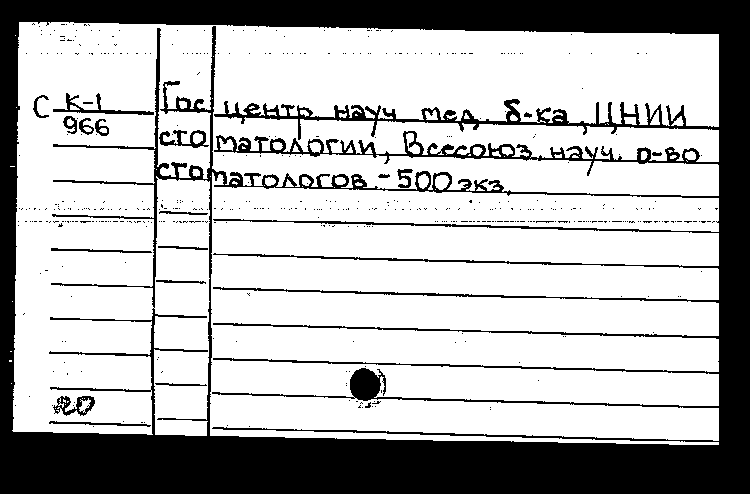 С К-1 Гос центр. науч. мед. б-ка, ЦНИИ
966 стоматологии, Всесоюз. науч. о-во
стоматологов. - 500 экз.
20